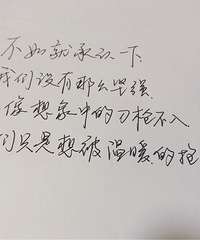 不如就承认一下
我们没有那么坚强
像想象中的刀枪不入
们只是想被温暖的抱